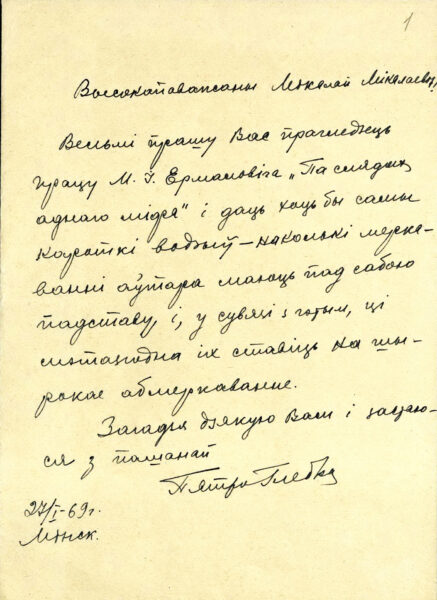 1
Высокопаважаны Мікалай Мікалаевіч!
Вельмі прашу Вас прагледзець
працу М. І. Ермаловіча „Па слядах
аднаго міфа" і даць хоць бы самы
кароткі водзыў — наколькі мерка-
ванні аўтара маюць пад сабою
падставу, і, у сувязі з гэтым, ці
мэтазгодна іх ставіць на шы-
рокае абмеркаванне.
Загадзя дзякую Вам і застаю-
ся з пашанай
Пятро Глебка
27/I-69 г.
Мінск.